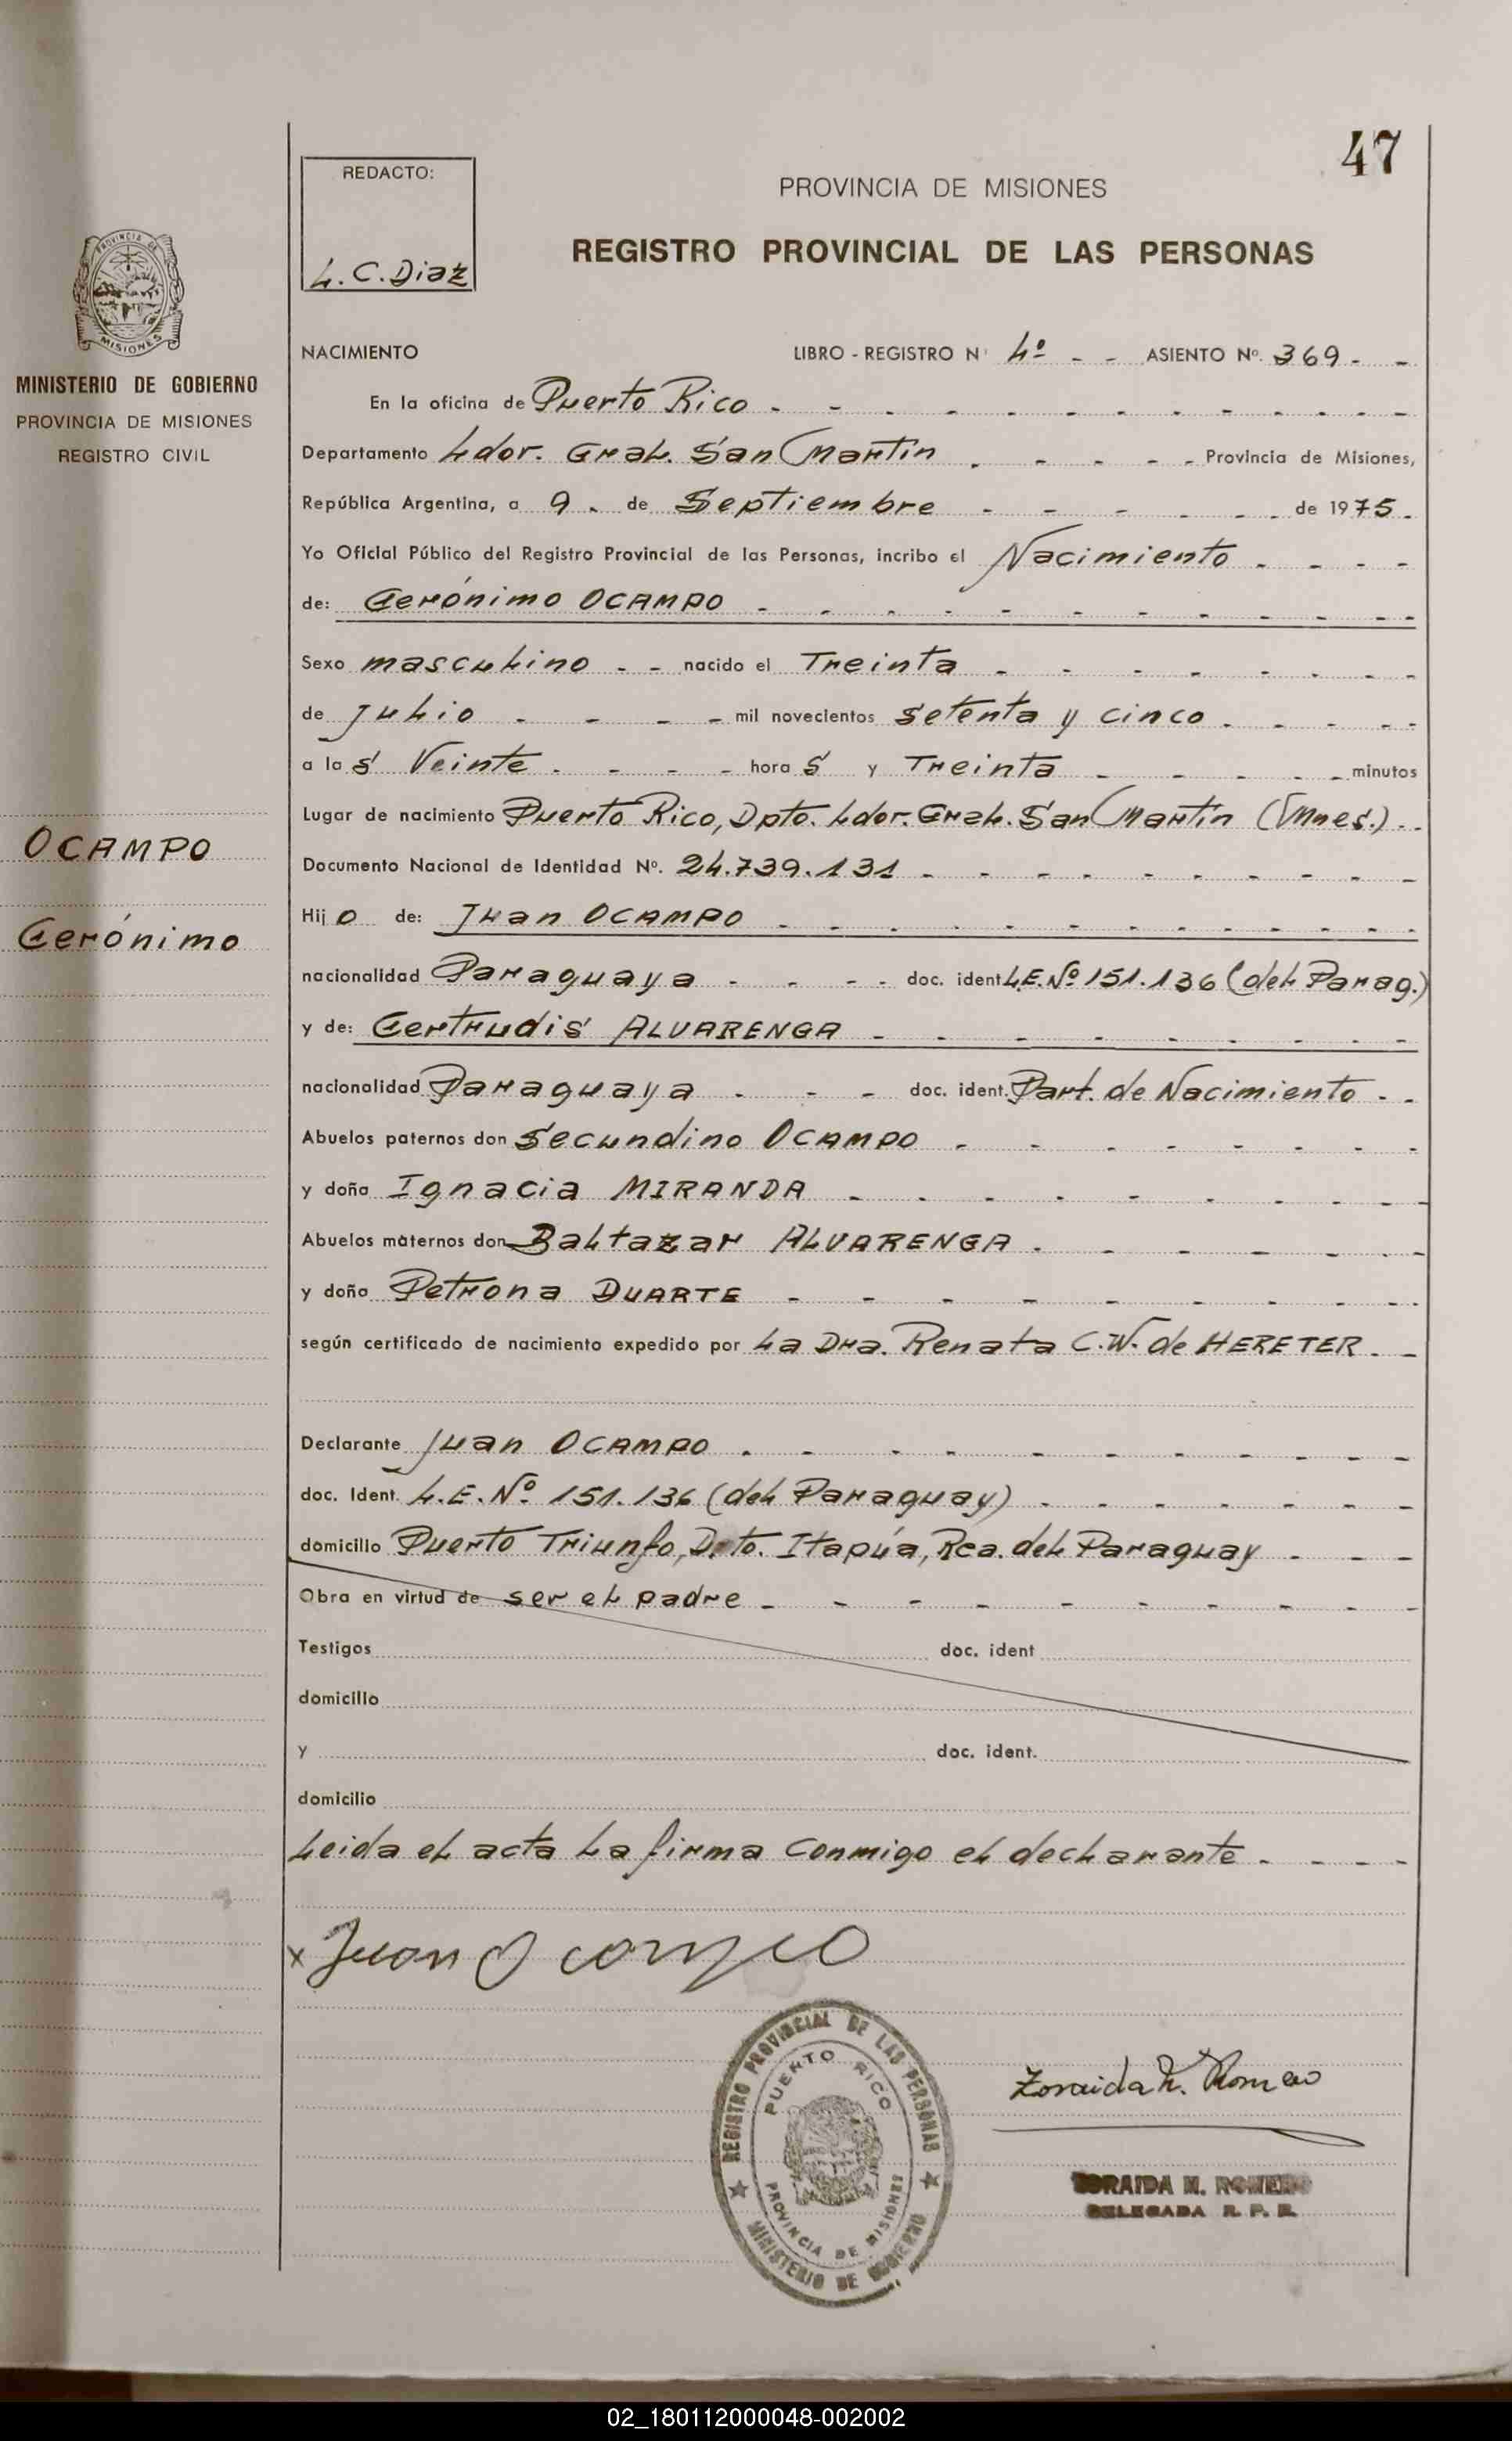 47
REDACTO:
L.C. Diaz
PROVINCIA DE MISIONES
REGISTRO PROVINCIAL DE LAS PERSONAS
PROVINCIA DE MISIONES
MINISTERIO DE GOBIERNO
PROVINCIA DE MISIONES
REGISTRO CIVIL
NACIMIENTO LIBRO - REGISTRO Nº 4º - - ASIENTO Nº. 369 - -
En la oficina de Puerto Rico
Departamento Ldor. Gral. San Martín Provincia de Misiones,
República Argentina, a 9 de Septiembre de 1975
Yo Oficial Público del Registro Provincial de las Personas, incribo el Nacimiento
de: Gerónimo OCAMPO
Sexo masculino nacido el Treinta
de Julio mil novecientos setenta y cinco
a las Veinte horas y Treinta minutos
Lugar de nacimiento Puerto Rico, Dpto. Ldor. Gral. San Martín (Mnes.)
OCAMPO
Gerónimo
Documento Nacional de Identidad Nº. 24.739.131
Hijo de: Juan OCAMPO
nacionalidad Paraguaya doc. ident. L.E. Nº 151.136 (del Parag.)
y de: Gertrudis ALVARENGA
nacionalidad Paraguaya doc. ident. Part. de Nacimiento
Abuelos paternos don Secundino OCAMPO
y doña Ignacia MIRANDA
Abuelos maternos don Baltazar ALVARENGA
y doña Petrona DUARTE
según certificado de nacimiento expedido por La Dra. Renata C.W. de HERETER
Declarante Juan OCAMPO
doc. Ident. L.E. Nº 151.136 (del Paraguay)
domicilio Puerto Triunfo, Dpto. Itapúa, Rca. del Paraguay
Obra en virtud de ser el padre
Testigos doc. ident
domicilio
y doc. ident.
domicilio
Leida el acta la firma conmigo el declarante
x Juan Ocampo
REGISTRO PROVINCIAL DE LAS PERSONAS
PUERTO RICO
PROVINCIA DE MISIONES
MINISTERIO DE GOBIERNO
Zoraida N. Romero
ZORAIDA N. ROMERO
DELEGADA R. P. P.
02_180112000048-002002